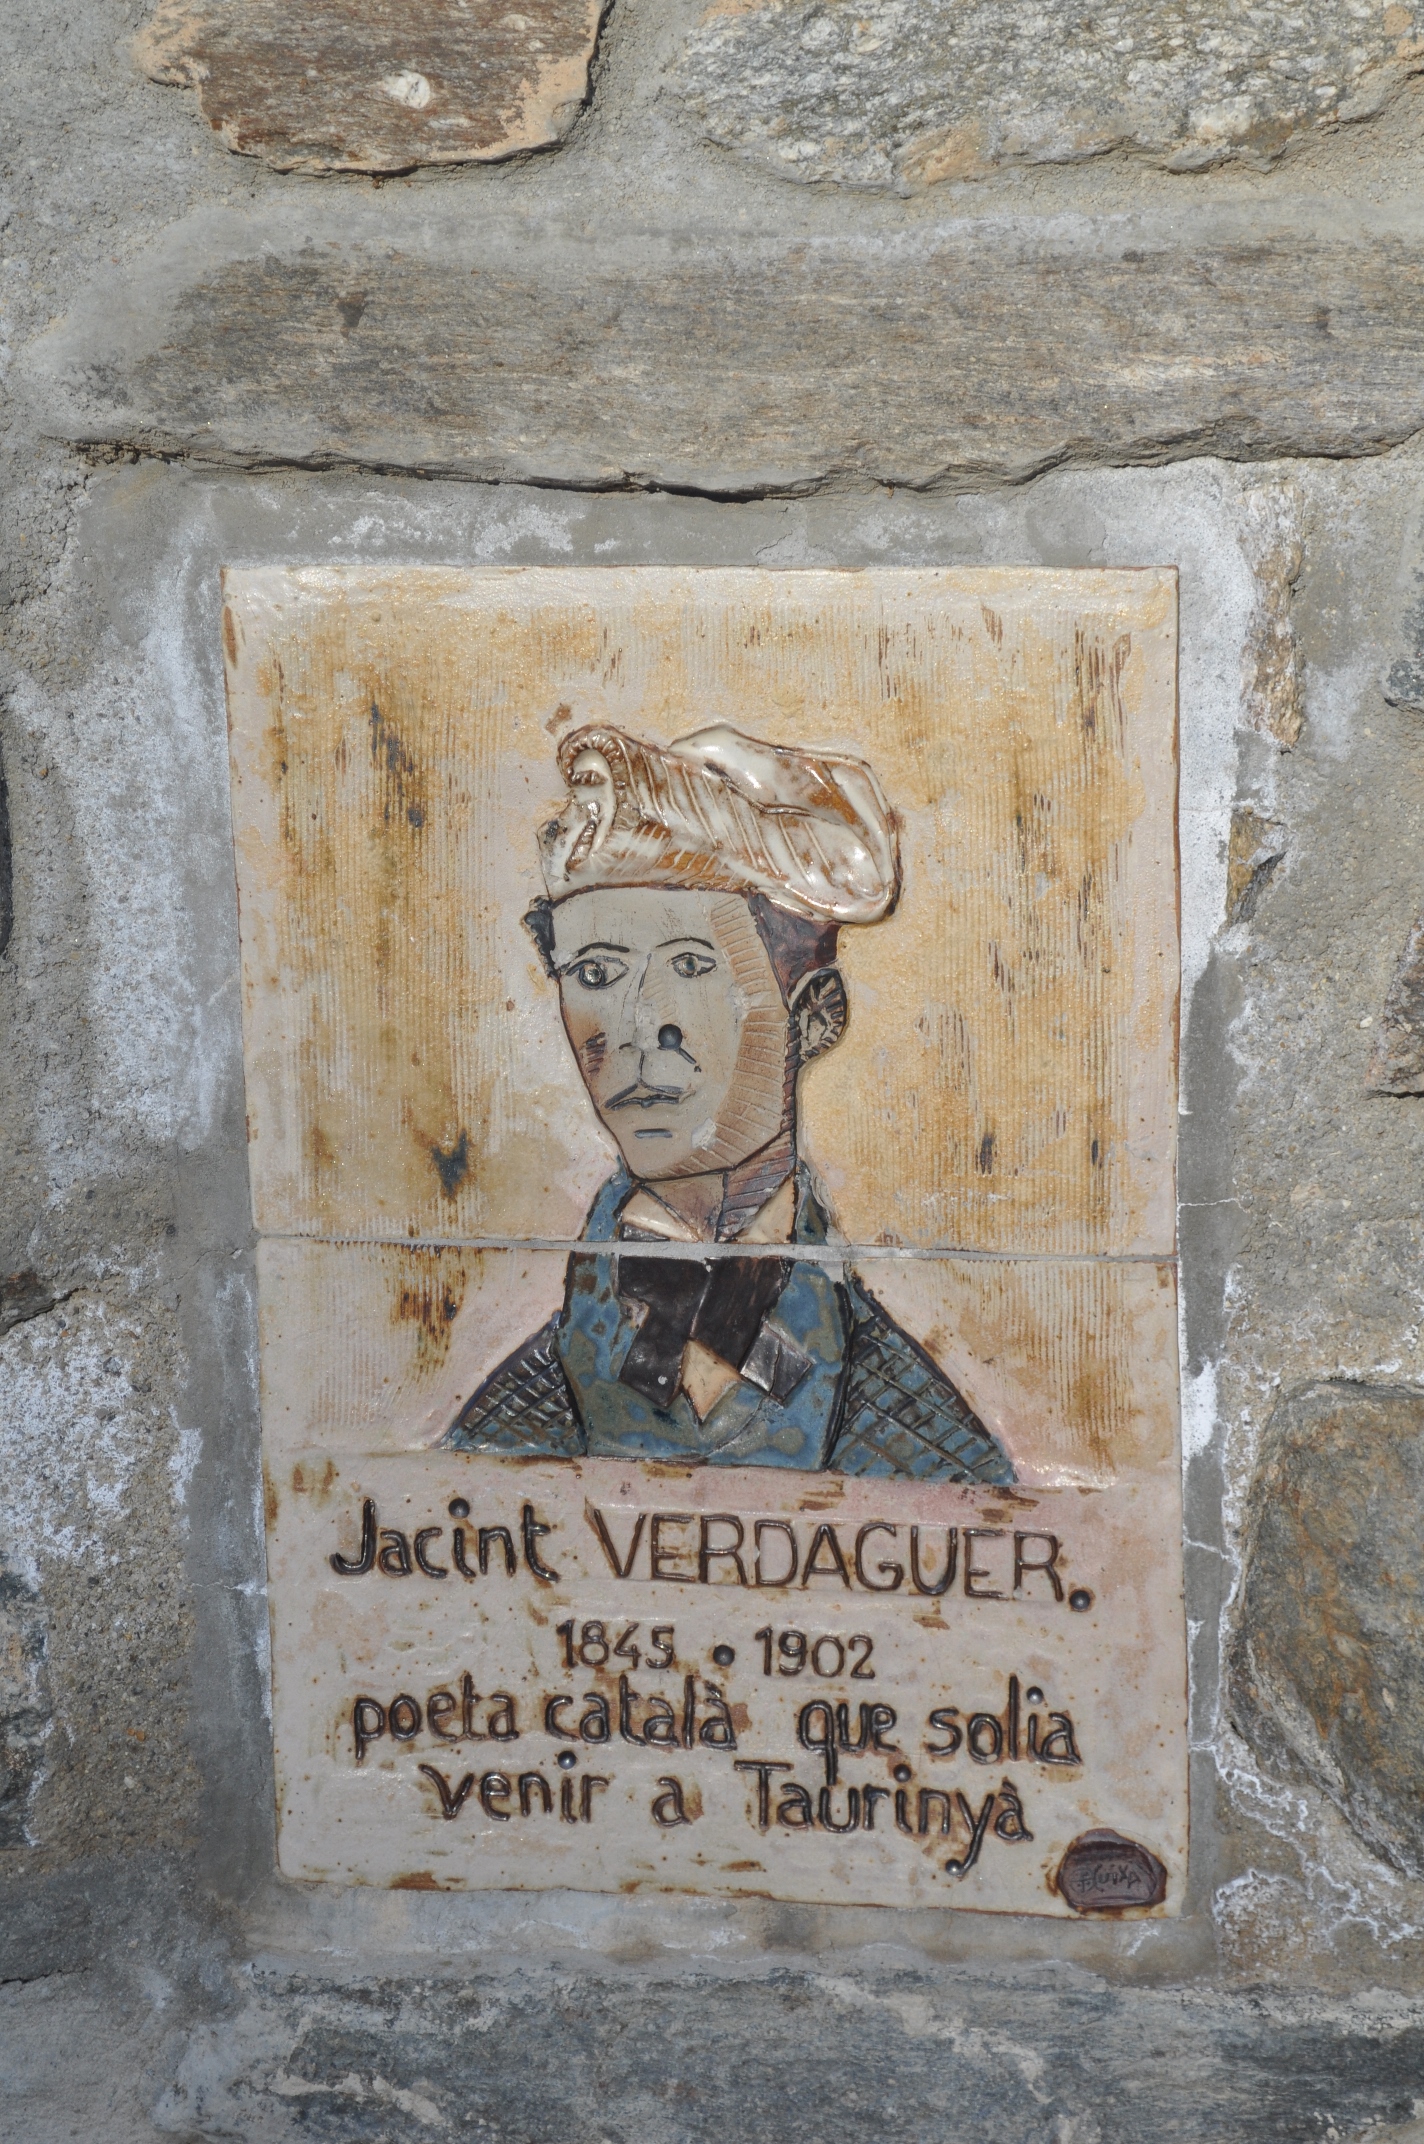 Jacint VERDAGUER.
1845 • 1902
poeta català que solia
venir a Taurinyà